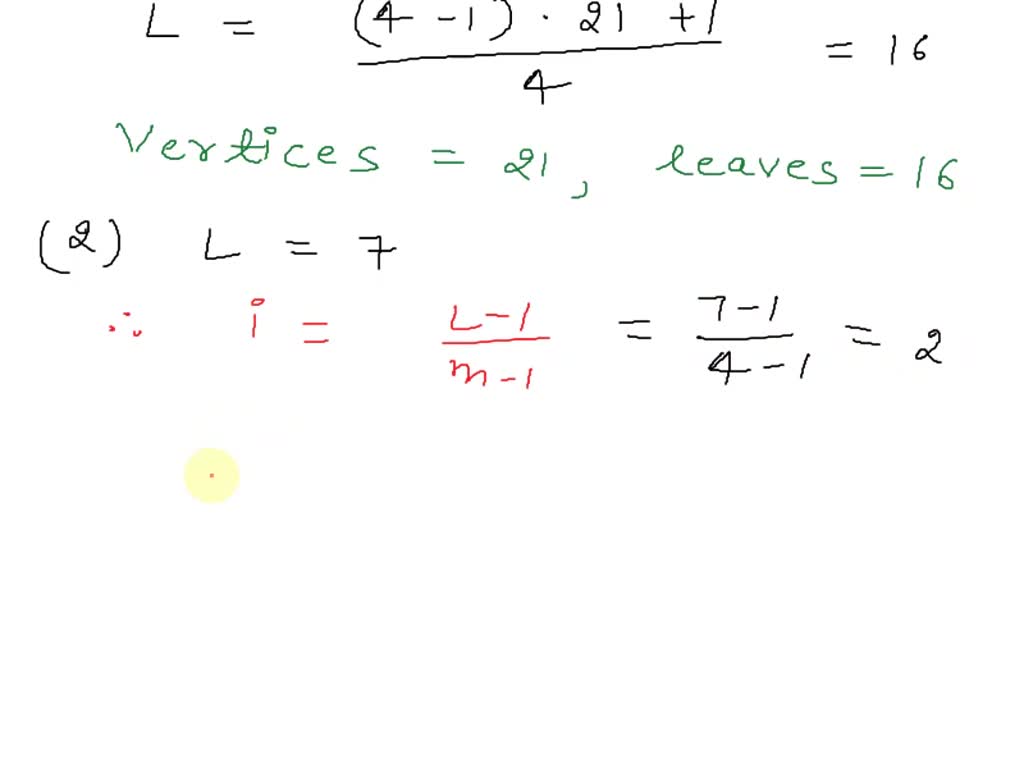 L = (4 - 1) · 21 + 1 / 4 = 16
Vertices = 21, leaves = 16
(2) L = 7
∴ i = L - 1 / m - 1 = 7 - 1 / 4 - 1 = 2